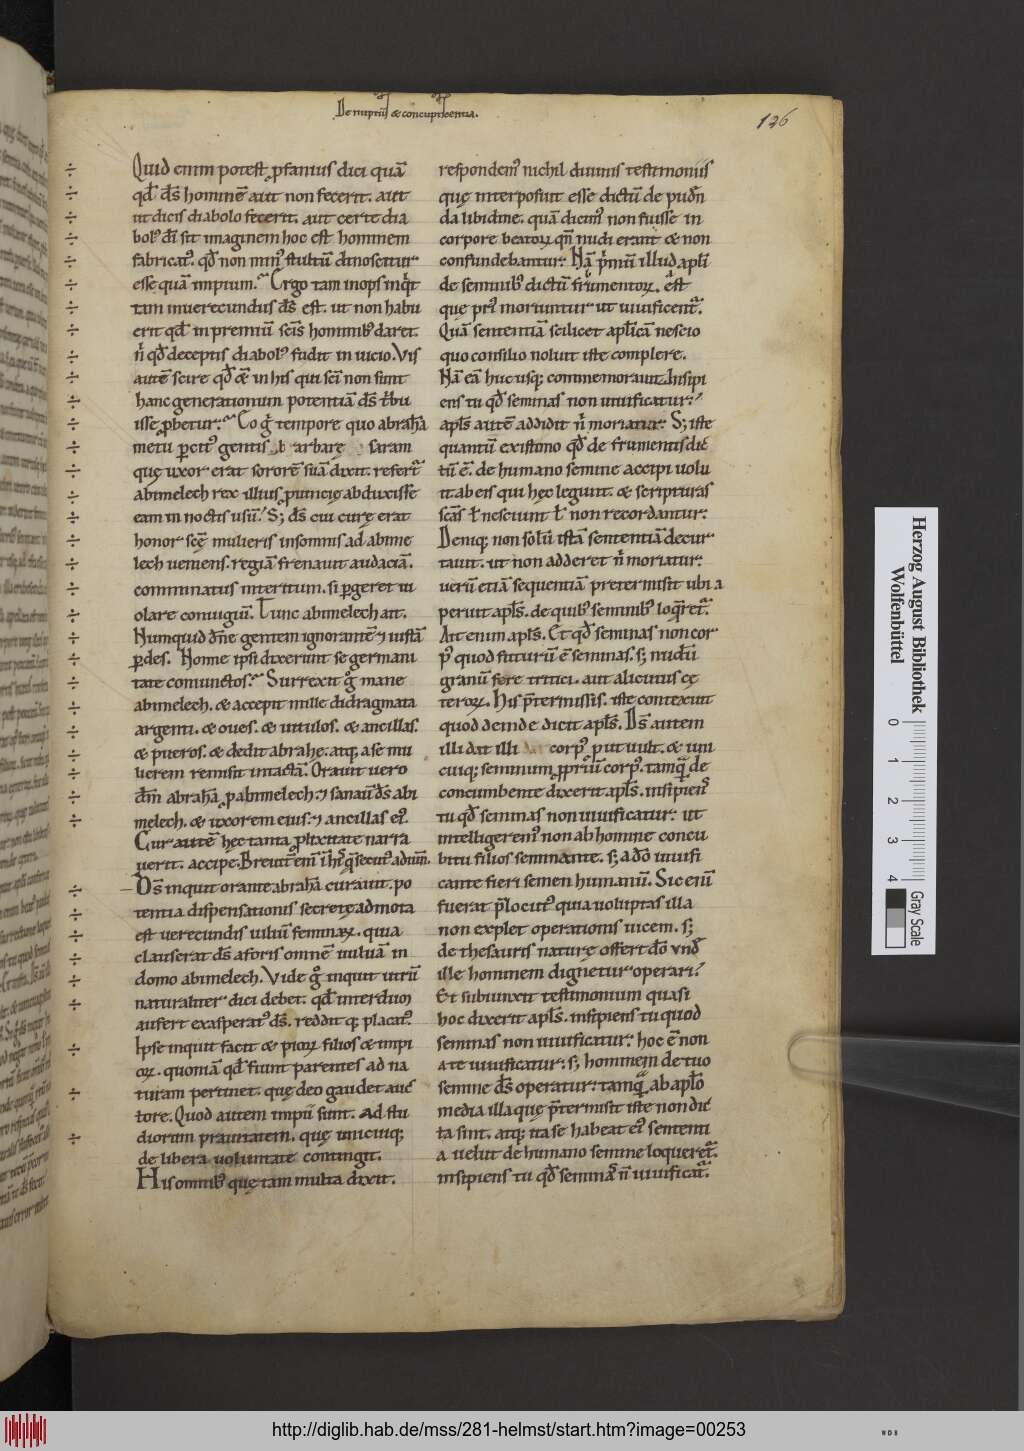 De nuptiis & concupiscentia.
126
Quid enim potest ꝓfanius dici quā
qđ dš hominē aut non fecerit. aut
ut dicis diabolo fecerit. aut certe dia
bolꝰ dī sit imaginem hoc est hominem
fabricatꝰ. qđ non minꝰ stultū dinoscitur
esse quam impium. Ergo tam inops inqͥt
tam inuerecundus dš est. ut non habu
erit qđ in premiū scīs hominibꝰ daret.
nͥ qđ deceptis diabolꝰ fudit in uicio. Vis
autē scire qđ ē in his qui scī non sunt
hanc generationum potentiā dš tͥbu
isse ꝓbetur. Eo gͥ tempore quo abrahā
metu ꝑcitꝰ gentis barbarę saram
quę uxor erat sororē suā dixit. refert᷑
abimelech rex illius ꝓuincię abduxisse
eam in noctis usū. S; dš cui curę erat
honor scę mulieris insomnis ad abime
lech ueniens. regiā frenauit audaciā.
comminatus interitum. si ꝑgeret ui
olare coniugiū. Tunc abimelech ait.
Numquid dn̄e gentem ignorantē ⁊ iustā
ꝑdes. Nonne ipsi dixerunt se germani
tate coniunctos. Surrexit gͦ mane
abimelech. & accepit mille didragmata
argenti. & oues. & uitulos. & ancillas.
& pueros. & dedit abrahę. atq; a se mu
lierem remisit intactā. Orauit uero
dm̄ abrahā ꝓ abimelech. ⁊ sanauit dš abi
melech. & uxorem eius. ⁊ ancillas eiꝰ.
Cur autē hęc tanta ꝓlixitate narra
uerit. accipe.
Dš inquit orante abrahā curauit. po
tentia dispensationis secretę admota
est uerecundis uuluū feminaꝝ. quia
clauserat dš aforis omnē uuluā in
domo abimelech. Vide gͦ inquit utrū
naturaliter dici debet. qđ interdum
aufert exasperatꝰ dš. reddit q; placatꝰ.
Ipse inquit facit & pioꝝ filios & impi
oꝝ. quoniā qđ fiunt parentes ad na
turam pertinet. quę deo gaudet auc̄
tore. Quod autem impii sunt. ad stu
diorum prauitatem. quę unicuiq;
de libera uoluntate contingit.
His omnibꝰ quę tam multa dixit.
respondemꝰ nichil diuinis testimoniis
quę interposuit esse dictū de pudēn
da libidine. quā dicimꝰ non fuisse in
corpore beatoꝝ qn̄ nudi erant & non
confundebantur. Nā pͥmū illud apłi
de seminibꝰ dictū frumentoꝝ. est
que priꝰ moriuntur ut uiuificent᷑.
Quā sententiā scilicet apłicā nescio
quo consilio noluit iste complere.
Nā eā huc usq; commemorauit. Insipi
ens tu qđ seminas non uiuificatur.
apłs autē addidit nͥ moriatur. S; iste
quantū existimo qđ de frumentis dic̄
tū ē. de humano semine accipi uolu
it ab eis qui hęc legunt. & scripturas
scās ł nesciunt ł non recordantur.
Deniq; non solū istā sententiā decur
tauit. ut non adderet nͥ moriatur.
uerū etiā sequentiā pretermisit ubi a
peruit apłs. de quibꝰ seminibꝰ loqͥret᷑.
Ait enim apłs. Et qđ seminas non cor
pꝰ quod futurū ē seminas. s; nudū
granū fere tritici. aut alicuius cę
teroꝝ. His p̄termissis. iste contexuit
quod deinde dicit apłs. Dš autem
illi dat illi corpꝰ put uult. & uni
cuiq; seminum ꝓpriū corpꝰ. tamq̄ de
concumbente dixerit apłs. insipiens
tu qđ seminas non uiuificatur. ut
intelligeremꝰ non ab homine concu
bitu filios seminante. s; a dō uiuifi
cante fieri semen humanū. Sic enī
fuerat p̄locutꝰ quia uoluptas illa
non explet operationis uicem. s;
de thesauris naturę offert dō und̄
ille hominem dignetur operari.
Et subiunxit testimonium quasi
hoc dixerit apłs. insipiens tu quod
seminas non uiuificatur. hoc ē non
a te uiuificatur. s; hominem de tuo
semine dš operatur. tamq̄ ab apło
media illa que p̄termisit iste non dic̄
ta sint. atq; ita se habeat eiꝰ sententi
a uelut de humano semine loqueret᷑.
insipiens tu qđ seminas n̄ uiuificat᷑.
Herzog August Bibliothek
Wolfenbüttel
0 1 2 3 4
Gray Scale
http://diglib.hab.de/mss/281-helmst/start.htm?image=00253